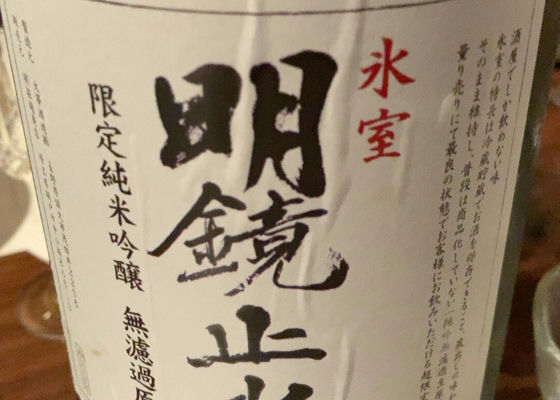 酒屋でしか飲めない味
氷室の特長は冷蔵貯蔵でお酒を保存できること、蔵出しの味わ
そのまま維持し、普段は商品化していない
量り売りにて最良の状態でお客様にお飲みいただける超限定
氷室
明鏡止水
限定純米吟醸 無濾過原